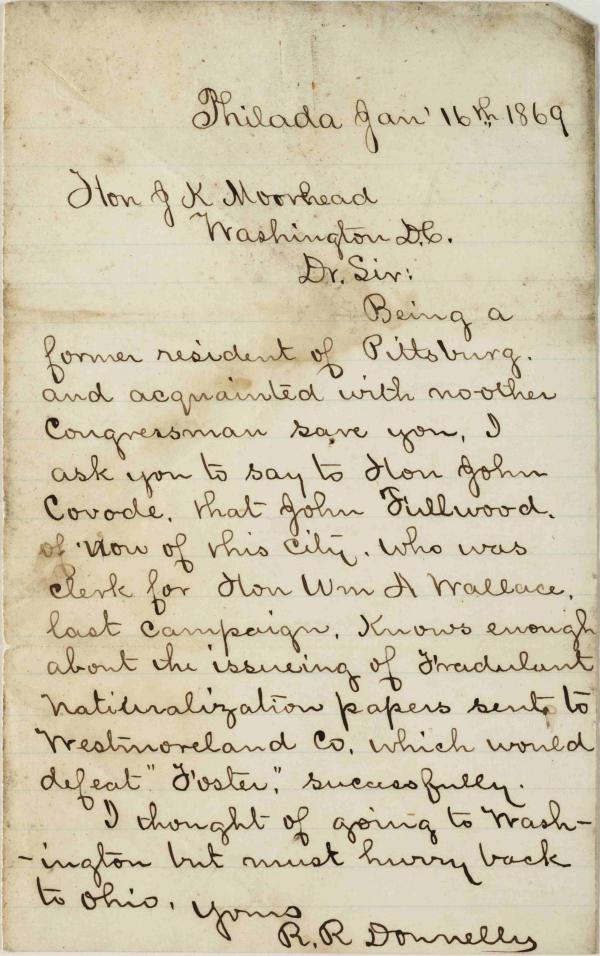 Philada Jan' 16th 1869
Hon J K Moorhead
Washington D.C.
Dr. Sir:
Being a
former resident of Pittsburg.
and acquainted with no other
Congressman save you, I
ask you to say to Hon John
Covode. that John Fullwood.
of now of this city. who was
clerk for Hon Wm A Wallace,
last campaign, Knows enough
about the issueing of Fradulant
Naturalization papers sent to
Westmoreland Co. which would
defeat "Foster," successfully.
I thought of going to Wash-
-ington but must hurry back
to Ohio. yours
R. R Donnelly